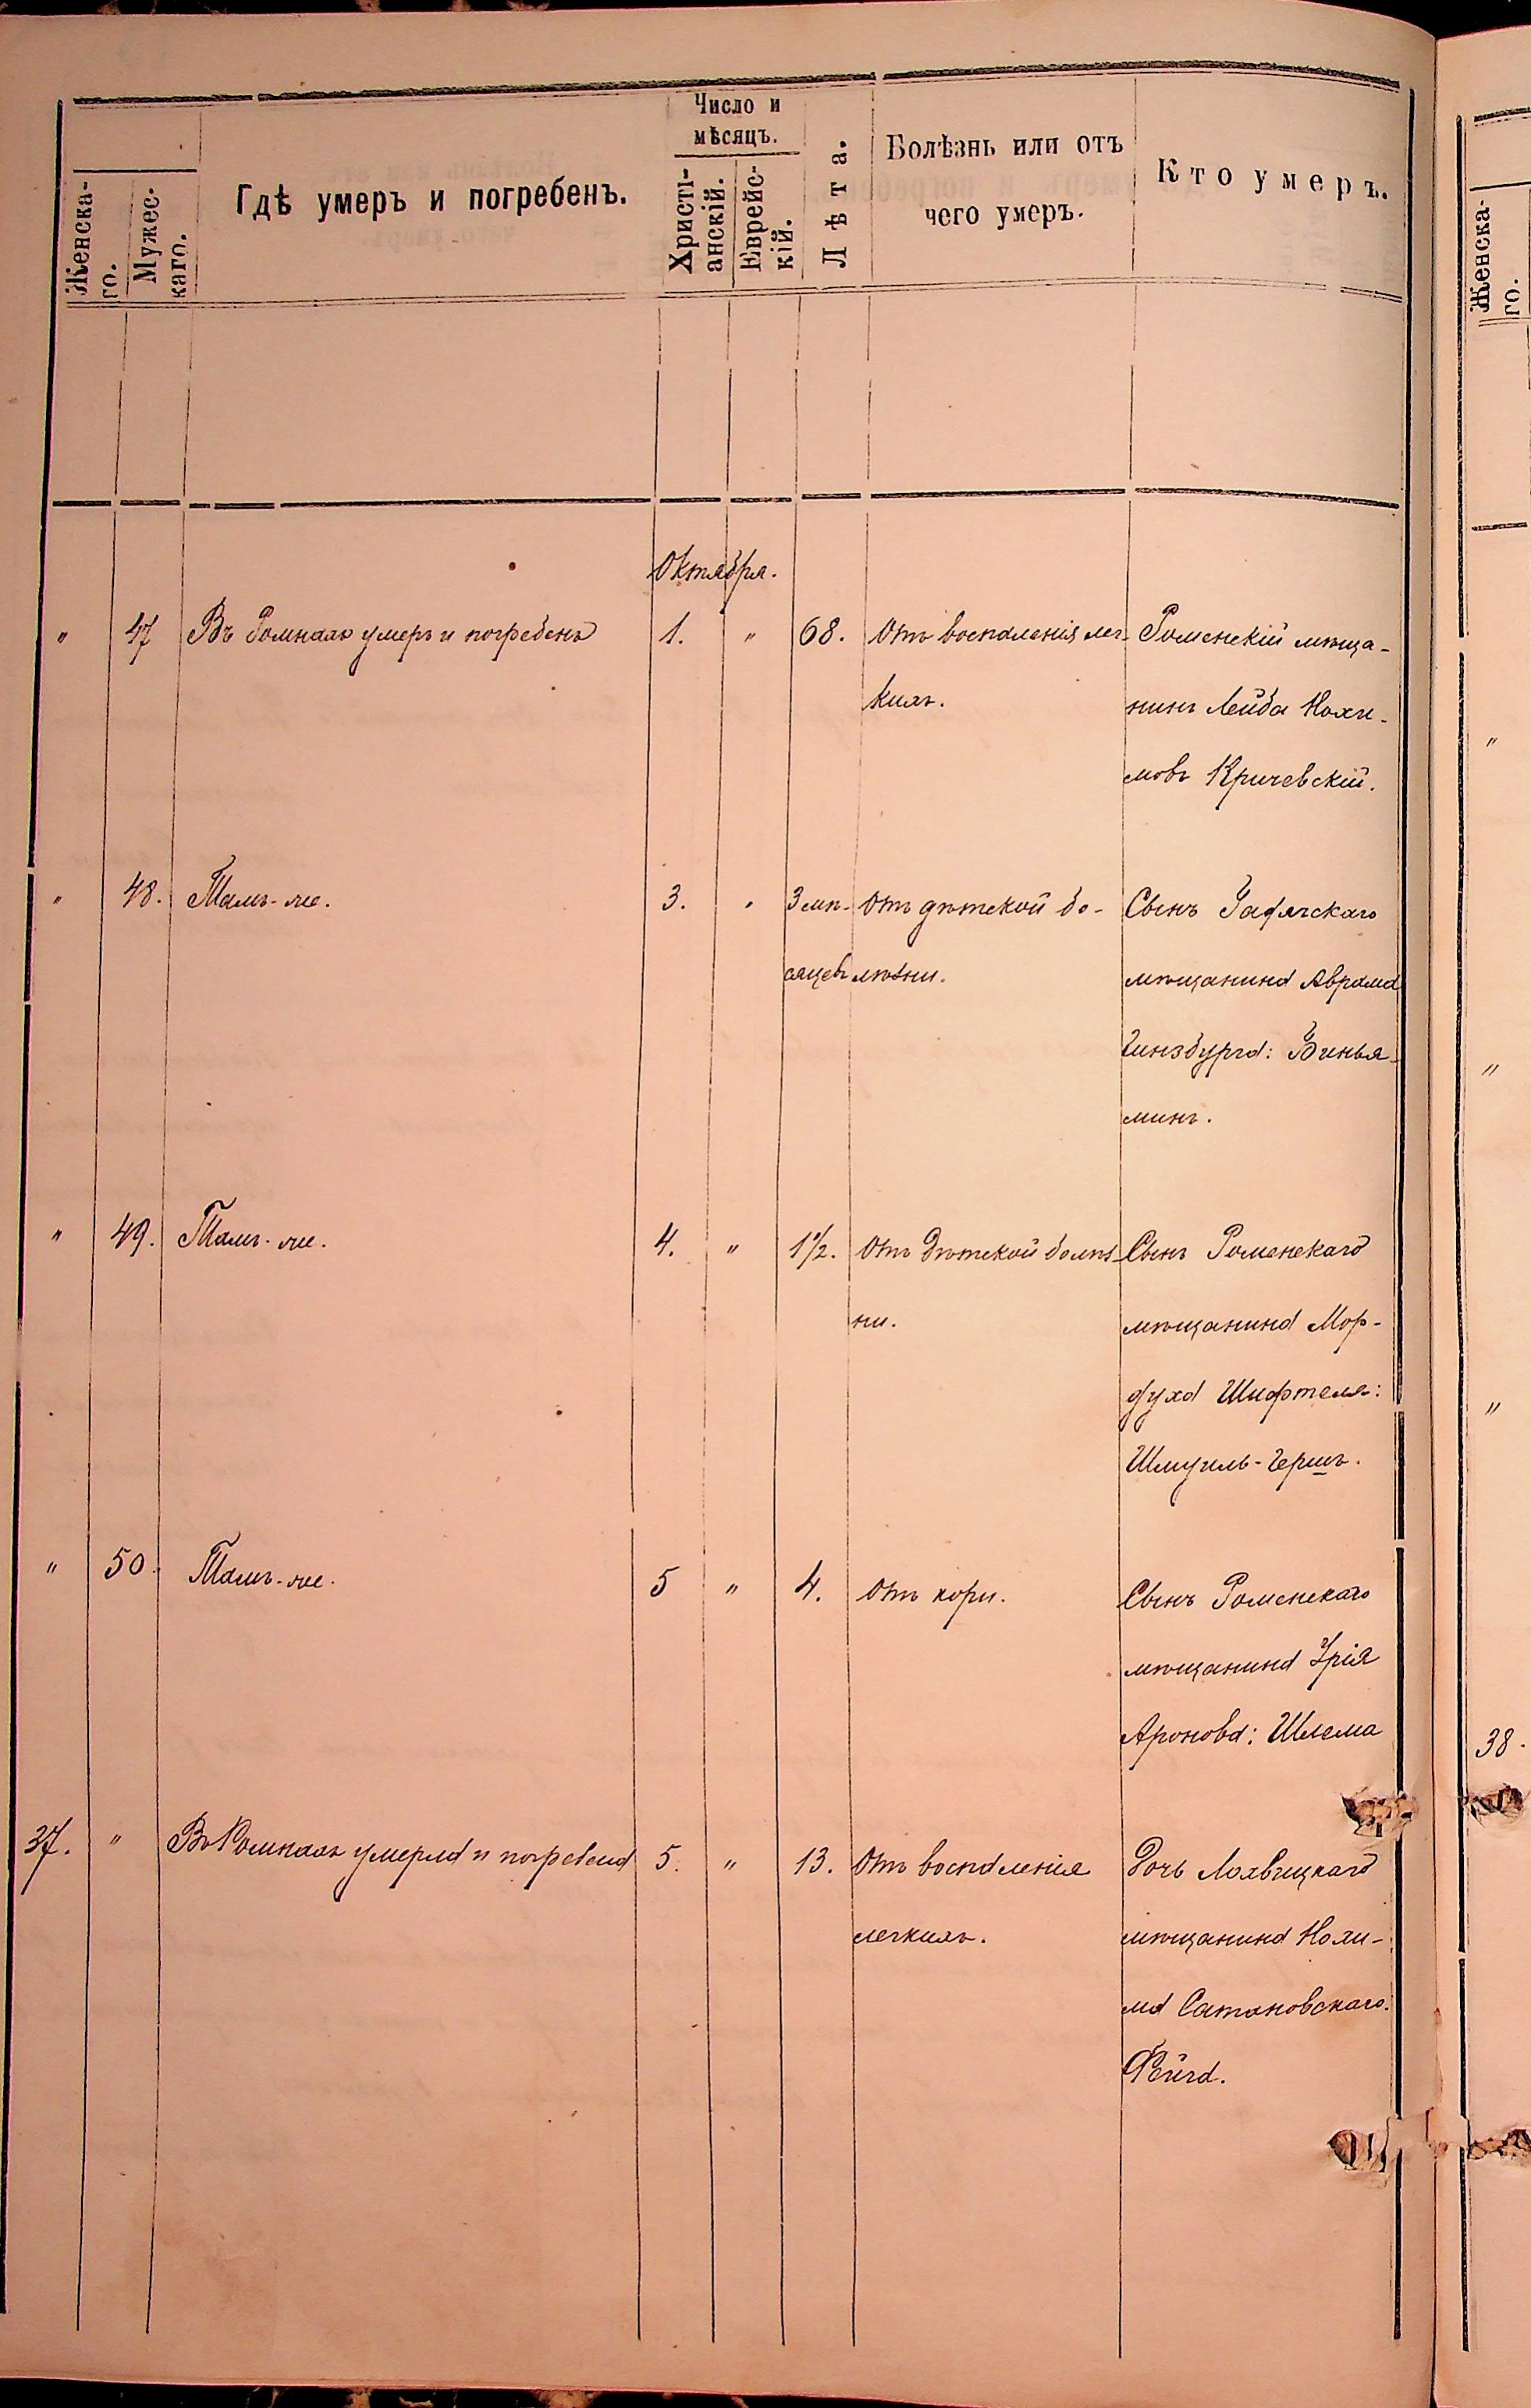 Женска-
го.
Мужес-
каго.
Гдѣ умеръ и погребенъ.
Число и
мѣсяцъ.
Христі-
анскій.
Еврейс-
кій.
Лѣта.
Болѣзнь или отъ
чего умеръ.
Кто умеръ.
Октября.
" 47 Въ Ромнахъ умеръ и погребенъ 1. " 68. Отъ воспаленія лег- Роменскій мѣща-
кихъ. нинъ Лейба Нохи-
мовъ Кричевскій.
" 48. Тамъ-же. 3. " 3 мѣ- Отъ дѣтской бо- Сынъ Гадячскаго
сяцевъ лѣзни. мѣщанина Аврама
Гинзбурга: Винья-
минъ.
" 49. Тамъ-же. 4. " 1½. Отъ дѣтской болѣз- Сынъ Роменскаго
ни. мѣщанина Мор-
духа Шифтеля:
Шмуиль-Гершъ.
" 50. Тамъ-же. 5 " 4. Отъ кори. Сынъ Роменскаго
мѣщанина Урія
Аронова: Шлема
37. " Въ Ромнахъ умерла и погребена 5. " 13. Отъ воспаленія Дочь Лохвицкаго
легкихъ. мѣщанина Нохи-
ма Сатановскаго:
Фейга.
Женска-
го.
"
"
"
38.